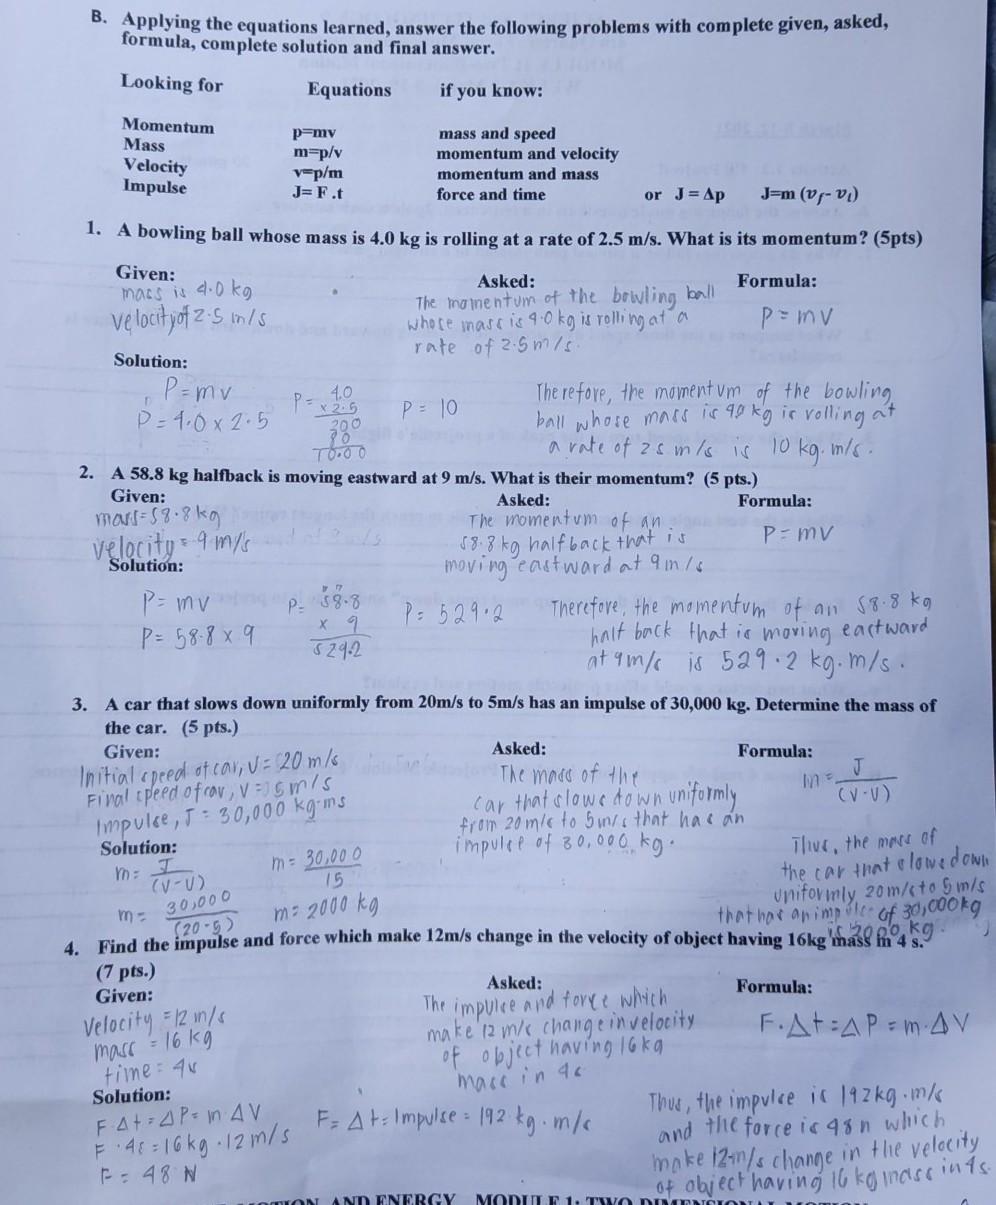 B. Applying the equations learned, answer the following problems with complete given, asked,
formula, complete solution and final answer.
Looking for Equations if you know:
Momentum p=mv mass and speed
Mass m=p/v momentum and velocity
Velocity v=p/m momentum and mass
Impulse J= F .t force and time or J = Δp J=m (vf- vi)
1. A bowling ball whose mass is 4.0 kg is rolling at a rate of 2.5 m/s. What is its momentum? (5pts)
Given: Asked: Formula:
mass is 4.0 kg
velocity of 2.5 m/s
The momentum of the bowling ball
whose mass is 4.0 kg is rolling at a
rate of 2.5 m/s.
P = mv
Solution:
P = mv
P = 4.0 x 2.5
P = 4.0
x 2.5
200
80
10.00
P = 10
Therefore, the momentum of the bowling
ball whose mass is 40 kg is rolling at
a rate of 2.5 m/s is 10 kg. m/s.
2. A 58.8 kg halfback is moving eastward at 9 m/s. What is their momentum? (5 pts.)
Given: Asked: Formula:
mass=58.8kg
velocity = 9 m/s
The momentum of an
58.8 kg halfback that is
moving eastward at 9 m/s
P = mv
Solution:
P= mv
P= 58.8 x 9
P= 58.8
x 9
529.2
P= 529.2
Therefore, the momentum of an 58.8 kg
half back that is moving eastward
at 9m/s is 529.2 kg. m/s.
3. A car that slows down uniformly from 20m/s to 5m/s has an impulse of 30,000 kg. Determine the mass of
the car. (5 pts.)
Given: Asked: Formula:
Initial speed of car, U = 20 m/s
Final speed of car, V = 5 m/s
Impulse, J = 30,000 kg-ms
The mass of the
car that slows down uniformly
from 20 m/s to 5m/s that has an
impulse of 30,000 kg.
m = J
(V-U)
Solution:
m= J
(V-U)
m= 30,000
(20-5)
m= 30,000
15
m= 2000 kg
Thus, the mass of
the car that slows down
uniformly 20m/s to 5 m/s
that has an impulse of 30,000kg
is 2000 kg.
4. Find the impulse and force which make 12m/s change in the velocity of object having 16kg mass in 4 s.
(7 pts.)
Given: Asked: Formula:
Velocity = 12 m/s
mass = 16 kg
time = 4s
The impulse and force which
make 12 m/s change in velocity
of object having 16kg
mass in 4s
F.Δt = ΔP = m.ΔV
Solution:
F.Δt = ΔP = m ΔV
F .4s = 16kg .12 m/s
F = 48 N
F= Δt= Impulse = 192 kg. m/s
Thus, the impulse is 192 kg. m/s
and the force is 48 n which
make 12m/s change in the velocity
of object having 16 kg mass in 4s.
AND ENERGY MODULE 1: TWO DIMENSIONAL MOTION